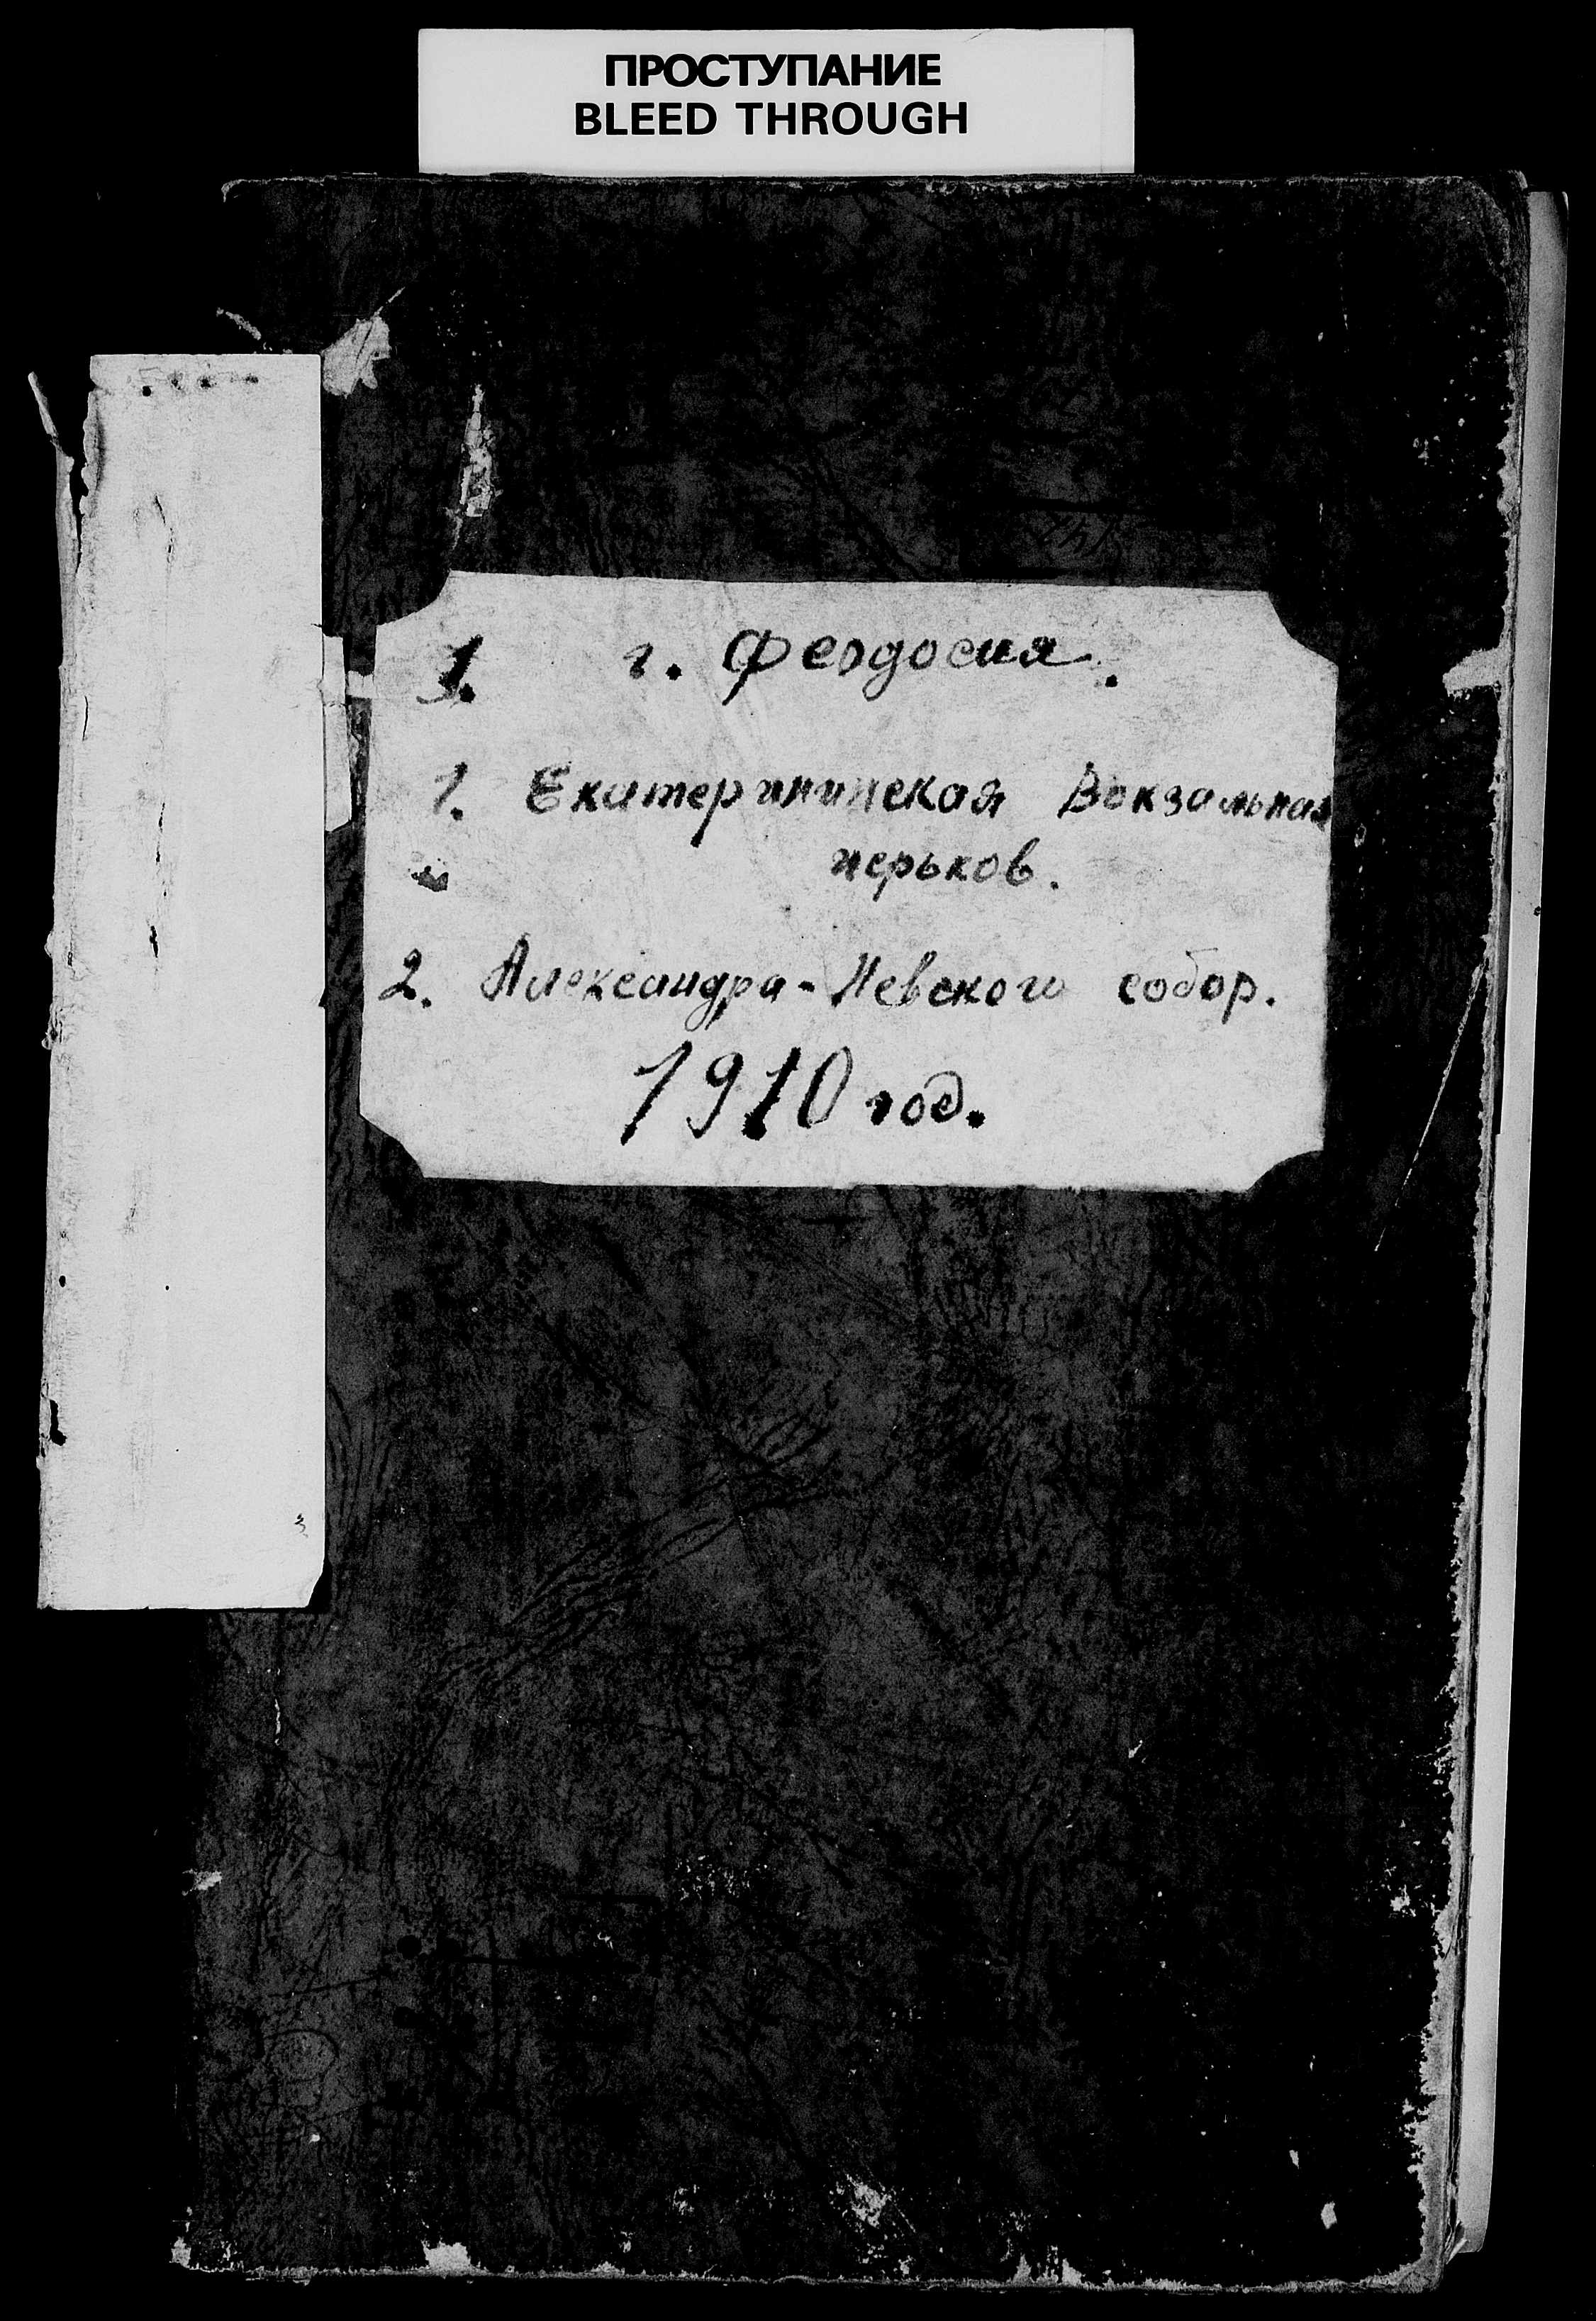 ПРОСТУПАНИЕ
BLEED THROUGH
1. г. Феодосия.
1. Екатерининская Вокзальная
церьков.
2. Александра-Невского собор.
1910 год.